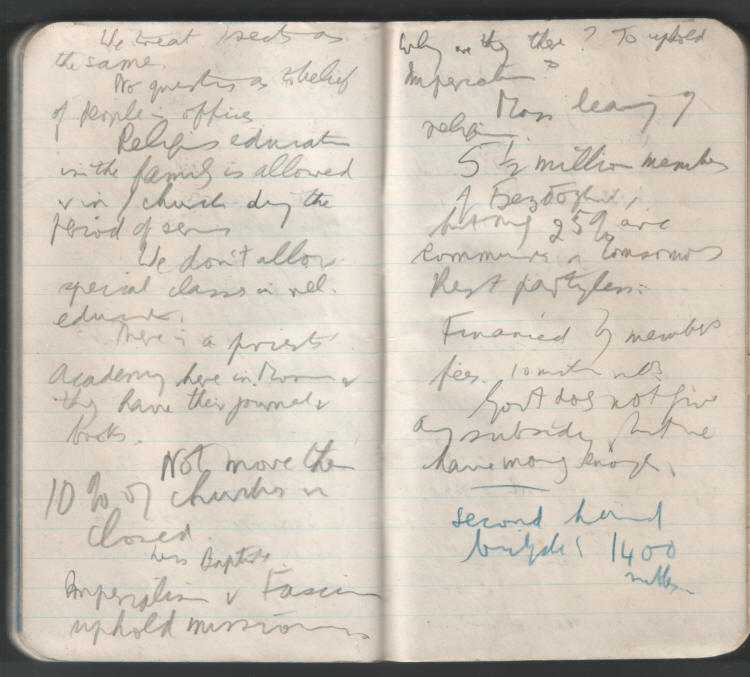 We treat sects as
the same.
No question as to belief
of people in offices
Religious education
in the family is allowed
& in church dug the
period of
We don't allow
special classes in rel.
There is a priests
Academy here in &
they have their journals &
books.
Not more than
10% of churches
closed.
less Baptists
Imperialism & Fascism
uphold
Why are they there? To uphold
Imperialism?
Mass leaving of
religion.
5 ½ million members
of
but only 25% are
Communis
Rest partyless.
Financed by members
fees.
Govt does not give
any subsidy, but we
have money enough.
second hand
1400